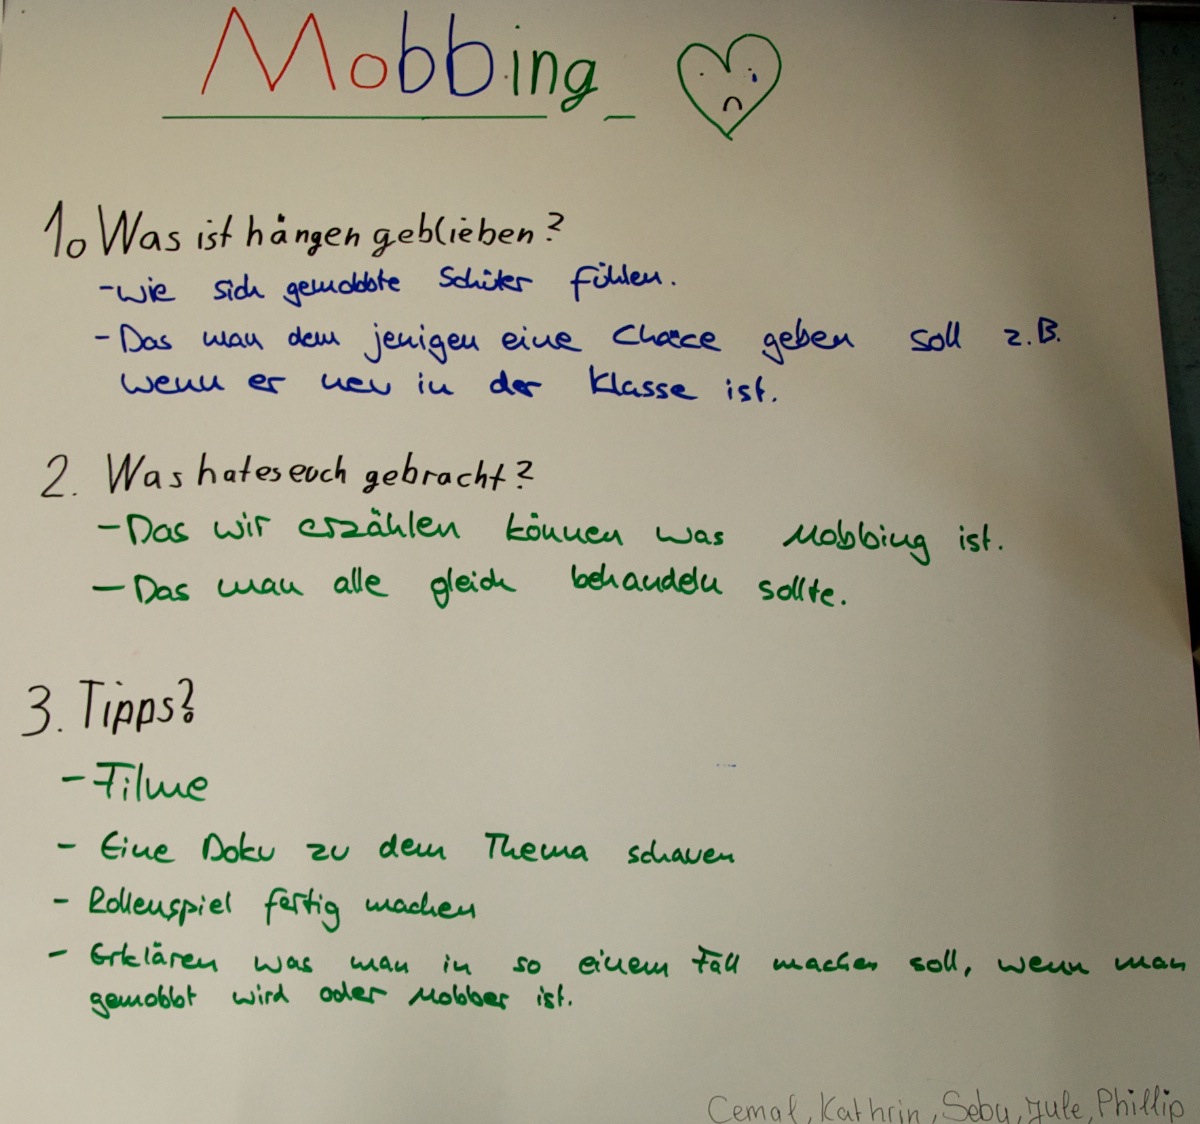 Mobbing
1. Was ist hängen geblieben?
- wie sich gemobbte Schüler fühlen.
- Das man dem jenigen eine Chance geben soll z.B.
wenn er neu in der Klasse ist.
2. Was hat es euch gebracht?
- Das wir erzählen können was Mobbing ist.
- Das man alle gleich behandeln sollte.
3. Tipps?
- Filme
- Eine Doku zu dem Thema schauen
- Rollenspiel fertig machen
- Erklären was man in so einem Fall machen soll, wenn man
gemobbt wird oder Mobber ist.
Cemal, Kathrin, Seby, Jule, Phillip